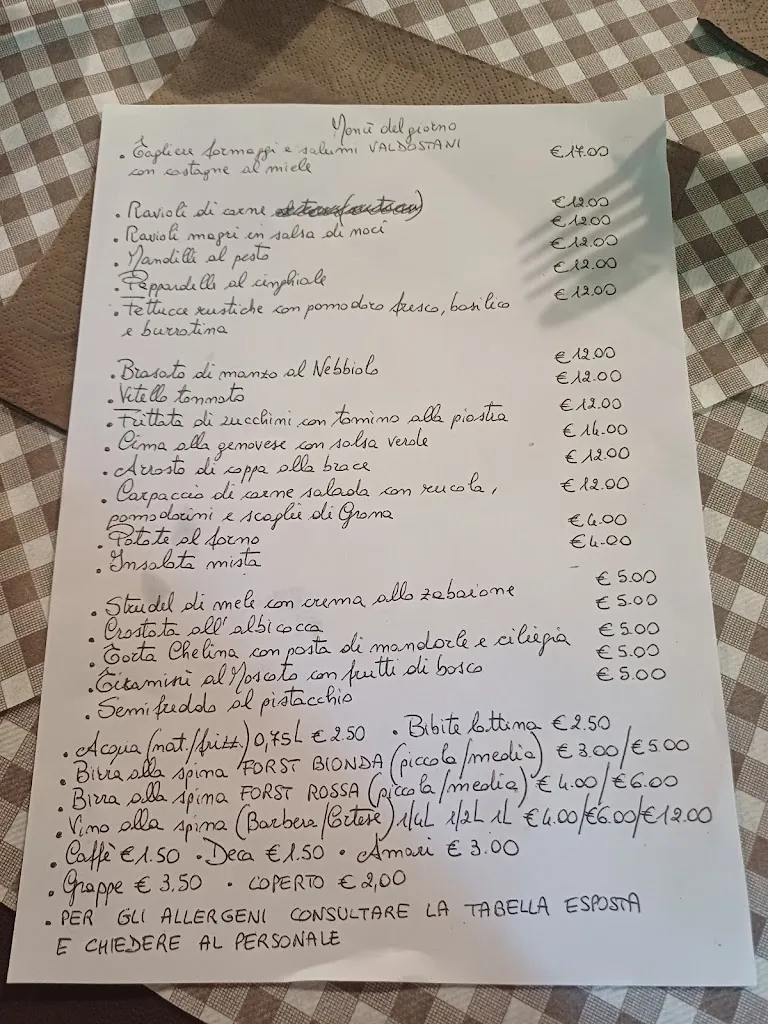 Menù del giorno
• Tagliere formaggi e salumi VALDOSTANI €17.00
con castagne al miele
• Ravioli di carne €12.00
• Ravioli magri in salsa di noci €12.00
• Mandilli al pesto €12.00
• Pappardelle al cinghiale €12.00
• Fettucce rustiche con pomodoro fresco, basilico €12.00
e burratina
• Brasato di manzo al Nebbiolo €12.00
• Vitello tonnato €12.00
• Frittata di zucchini con tomino alla piastra €12.00
• Cima alla genovese con salsa verde €14.00
• Arrosto di coppa alla brace €12.00
• Carpaccio di carne salada con rucola, €12.00
pomodorini e scaglie di Grana
• Patate al forno €4.00
• Insalata mista €4.00
• Strudel di mele con crema allo zabaione €5.00
• Crostata all'albicocca €5.00
• Torta Chelina con pasta di mandorle e ciliegia €5.00
• Tiramisù al Moscato con frutti di bosco €5.00
• Semifreddo al pistacchio €5.00
• Acqua (nat./frizz.) 0,75L €2.50 • Bibite lattina €2.50
• Birra alla spina FORST BIONDA (piccola/media) €3.00/€5.00
• Birra alla spina FORST ROSSA (piccola/media) €4.00/€6.00
• Vino alla spina (Barbera/Cortese) 1/4L 1/2L 1L €4.00/€6.00/€12.00
• Caffè €1.50 • Deca €1.50 • Amari €3.00
• Grappe €3,50 • COPERTO €2,00
• PER GLI ALLERGENI CONSULTARE LA TABELLA ESPOSTA
E CHIEDERE AL PERSONALE